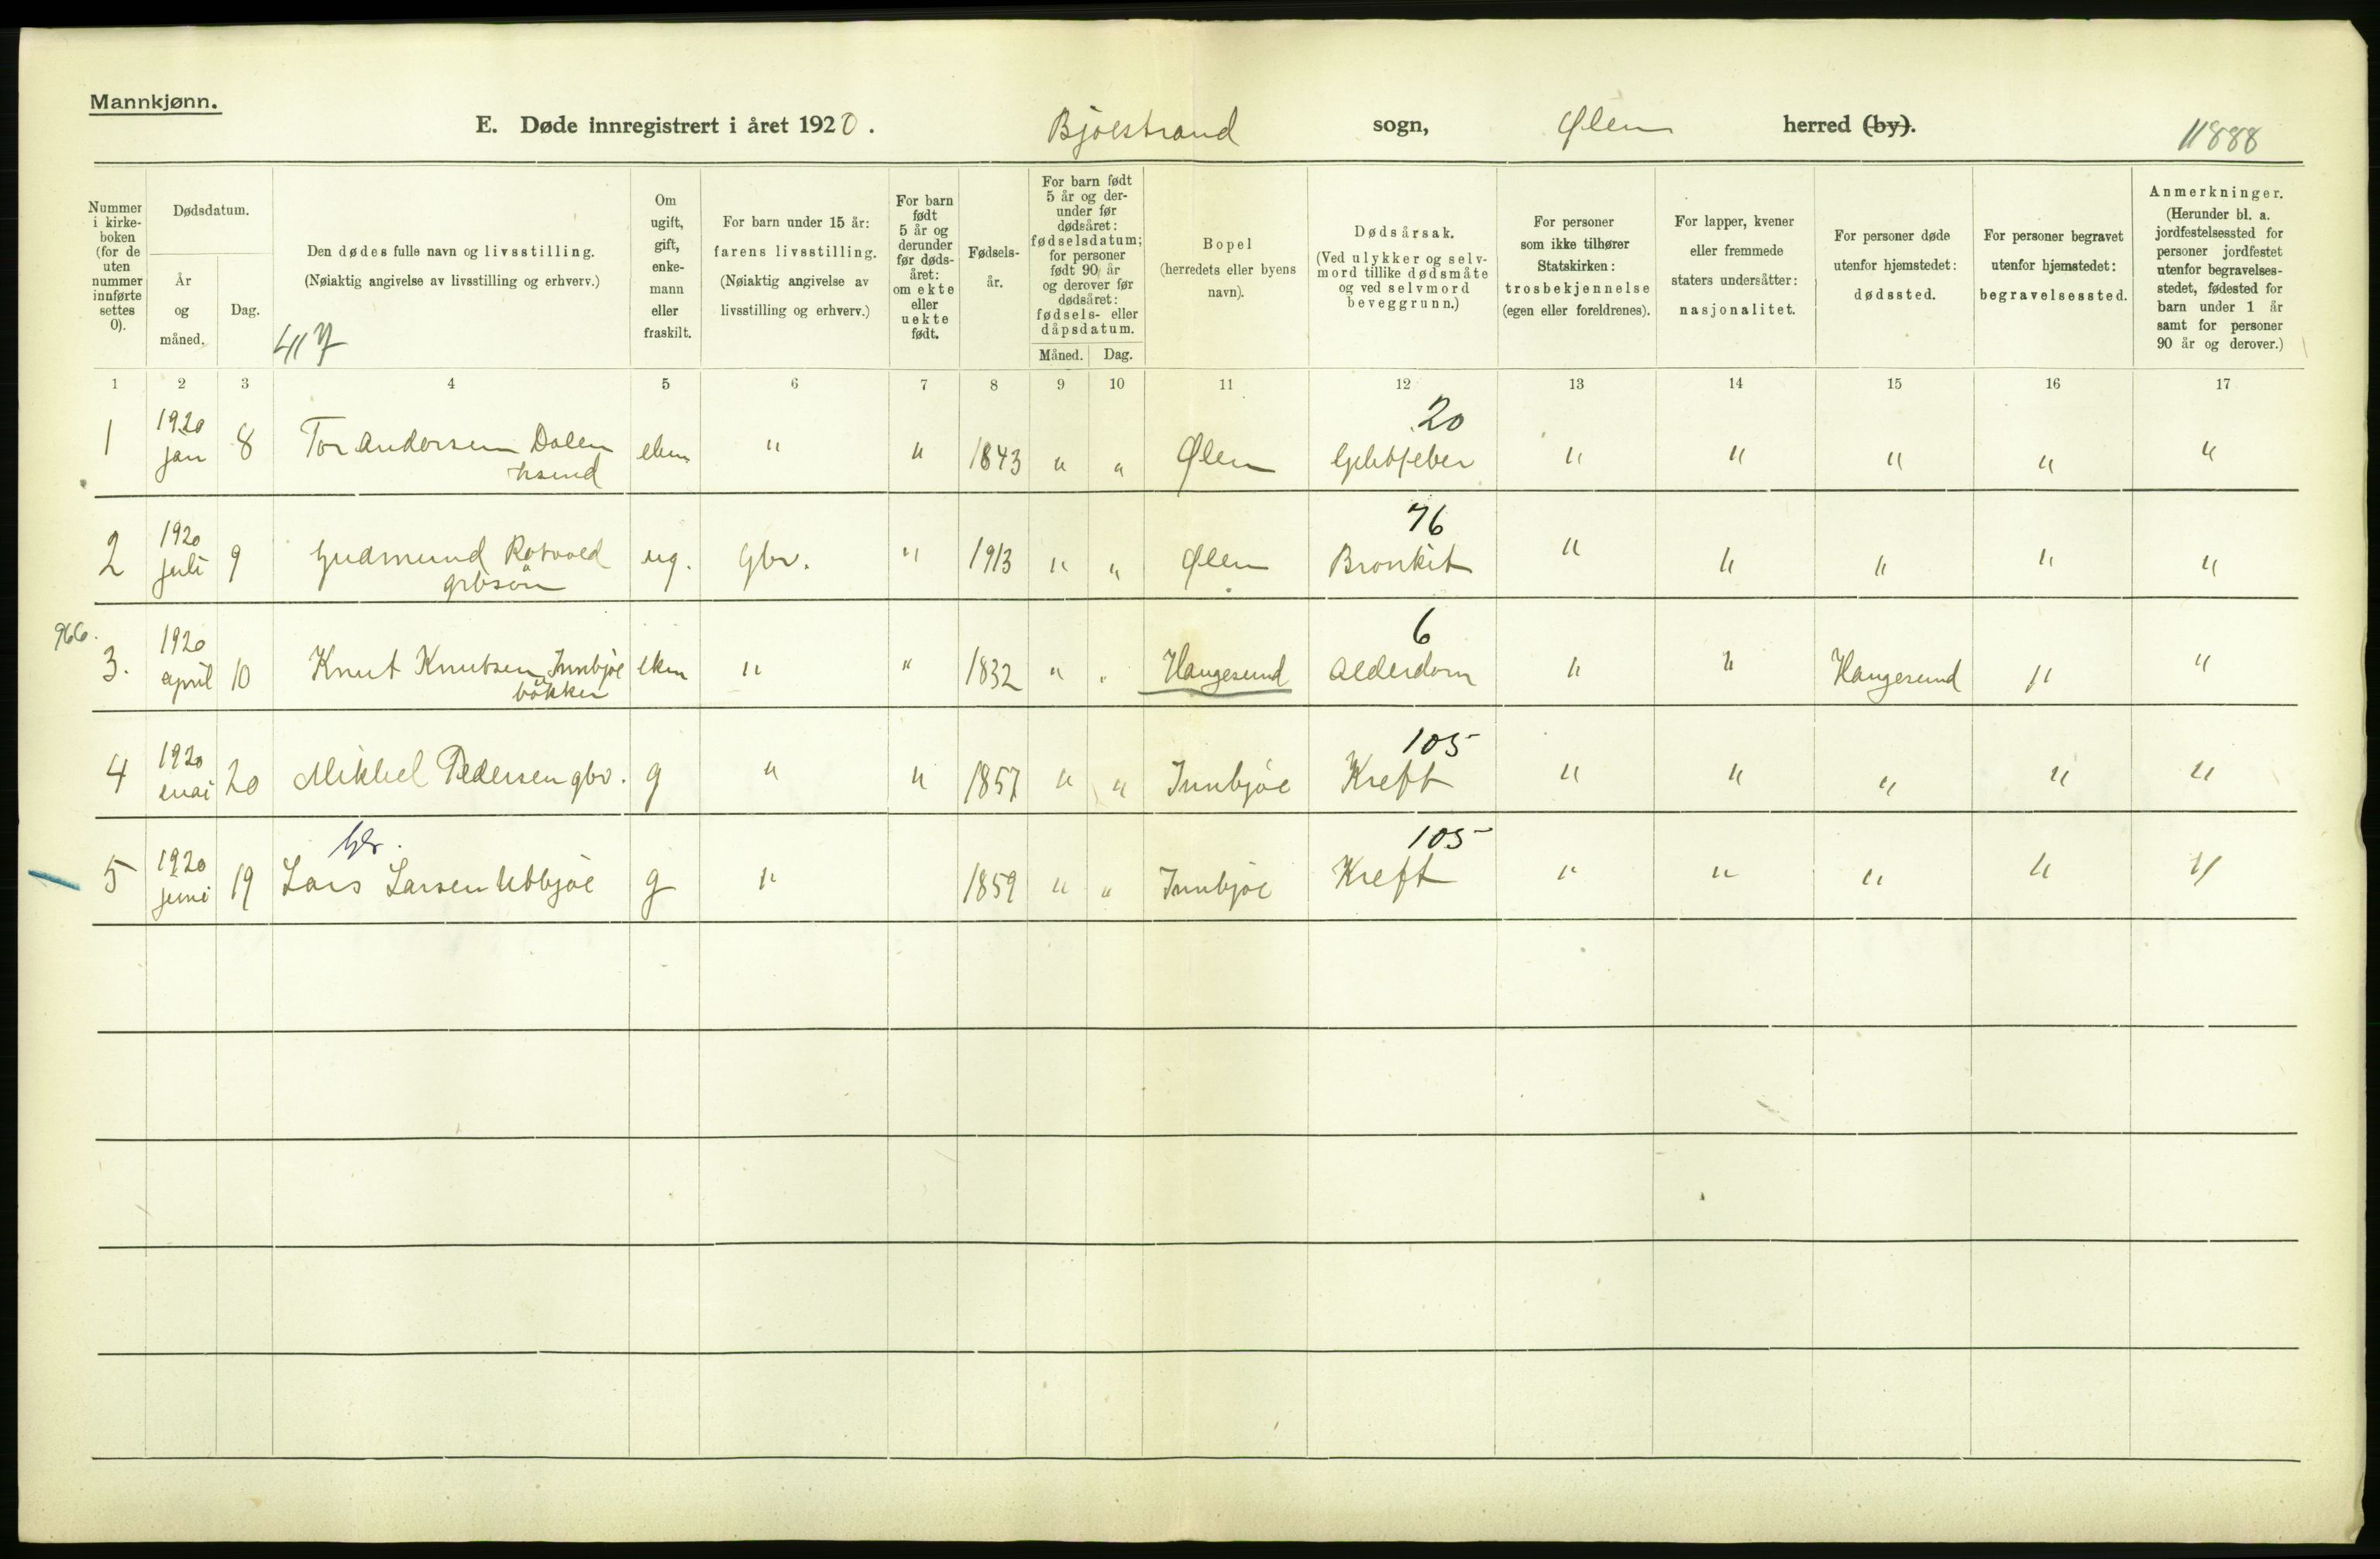 Mannkjønn.
E. Døde innregistrert i året 1920. Bjoestrand sogn, Ølen herred (by). 11888
Nummer i kirkeboken (for de uten nummer innførte settes 0).
Dødsdatum.
År og måned.
Dag.
Den dødes fulle navn og livsstilling.
(Nøiaktig angivelse av livsstilling og erhverv.)
417
Om ugift, gift, enkemann eller fraskilt.
For barn under 15 år: farens livsstilling.
(Nøiaktig angivelse av livsstilling og erhverv.)
For barn født 5 år og derunder før dødsåret: om ekte eller uekte født.
Fødselsår.
For barn født 5 år og derunder før dødsåret: fødselsdatum; for personer født 90 år og derover før dødsåret: fødsels- eller dåpsdatum.
Måned. Dag.
Bopel
(herredets eller byens navn).
Dødsårsak.
(Ved ulykker og selvmord tillike dødsmåte og ved selvmord beveggrunn.)
For personer som ikke tilhører Statskirken: trosbekjennelse (egen eller foreldrenes).
For lapper, kvener eller fremmede staters undersåtter: nasjonalitet.
For personer døde utenfor hjemstedet: dødssted.
For personer begravet utenfor hjemstedet: begravelsessted.
Anmerkninger.
(Herunder bl. a. jordfestelsessted for personer jordfestet utenfor begravelsesstedet, fødested for barn under 1 år samt for personer 90 år og derover.)
1 2 3 4 5 6 7 8 9 10 11 12 13 14 15 16 17
20
1 1920 jan 8 Tor Andersen Dalen ekm " " 1843 " " Ølen " " " " "
76
2 1920 juli 9 Gudmund ug. Gbr. " 1913 " " Ølen Bronkit " " " " "
gbsøn
966.
6
3. 1920 april 10 Knut Knutsen Innbjoe ekm " " 1832 " " Haugesund Alderdom " " Haugesund " "
bökker
105
4 1920 mai 20 Mikkel Pedersen gbr. g " " 1857 " " Innbjoe Kreft " " " " "
gbr. 105
5 1920 juni 19 Lars Larsen Utbjoe g " 1859 " " Innbjoe Kreft " " " " "